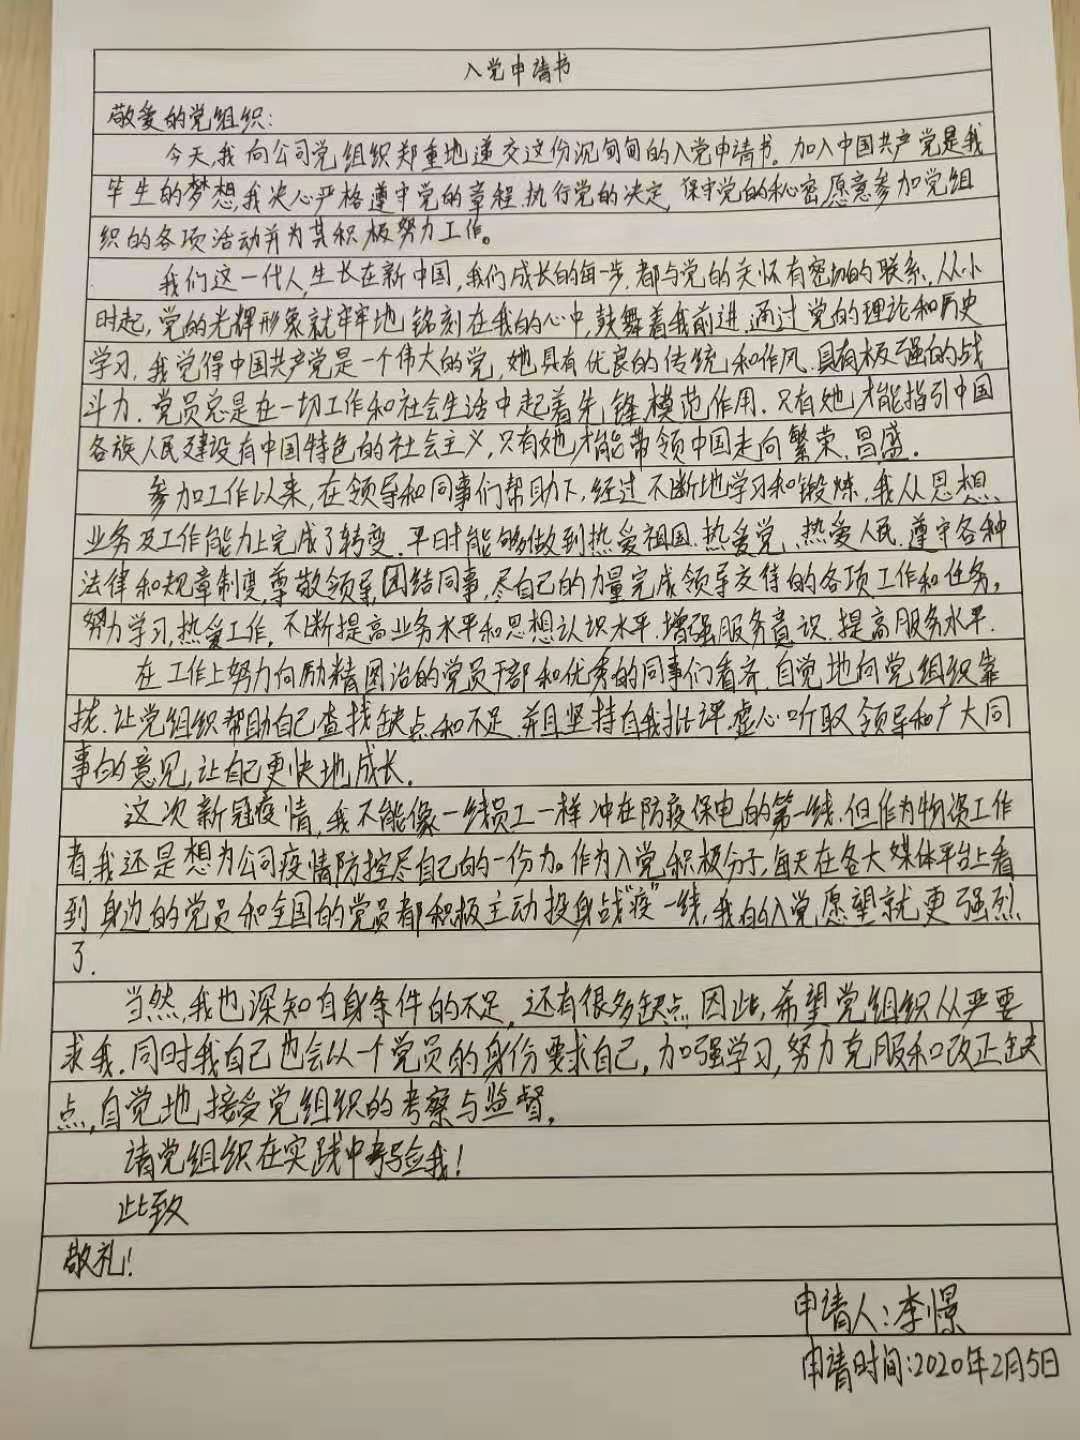 入党申请书
敬爱的党组织:
今天,我向公司党组织郑重地递交这份沉甸甸的入党申请书。加入中国共产党是我
毕生的梦想,我决心严格遵守党的章程.执行党的决定,保守党的秘密,愿意参加党组
织的各项活动并为其积极努力工作。
我们这一代人,生长在新中国,我们成长的每一步,都与党的关怀有密切的联系.从小
时起,党的光辉形象就牢牢地铭刻在我的心中,鼓舞着我前进.通过党的理论和历史
学习,我觉得中国共产党是一个伟大的党,她具有优良的传统和作风.具有极强的战
斗力.党员总是在一切工作和社会生活中起着先锋模范作用.只有她,才能指引中国
各族人民建设有中国特色的社会主义,只有她,才能带领中国走向繁荣、昌盛.
参加工作以来,在领导和同事们帮助下,经过不断地学习和锻炼,我从思想、
业务及工作能力上完成了转变.平时能够做到热爱祖国、热爱党、热爱人民.遵守各种
法律和规章制度,尊敬领导,团结同事,尽自己的力量完成领导交待的各项工作和任务。
努力学习,热爱工作,不断提高业务水平和思想认识水平.增强服务意识.提高服务水平.
在工作上努力向励精图治的党员干部和优秀的同事们看齐.自觉地向党组织靠
拢.让党组织帮助自己查找缺点和不足.并且坚持自我批评.虚心听取领导和广大同
事的意见,让自己更快地成长.
这次新冠疫情,我不能像一线员工一样冲在防疫保电的第一线.但作为物资工作
者,我还是想为公司疫情防控尽自己的一份力.作为入党积极分子,每天在各大媒体平台上看
到身边的党员和全国的党员都积极主动投身战“疫”一线,我的入党愿望就更强烈
了.
当然,我也深知自身条件的不足,还有很多缺点.因此,希望党组织从严要
求我.同时我自己也会以一个党员的身份要求自己,加强学习,努力克服和改正缺
点,自觉地接受党组织的考察与监督.
请党组织在实践中考验我!
此致
敬礼!
申请人:李憬
申请时间:2020年2月5日